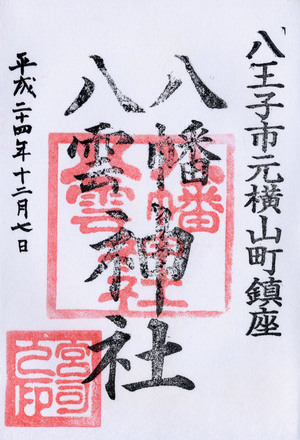 八王子市元横山町鎮座
八幡
八雲
神社
平成二十四年十二月七日
八幡八雲神社
宮司之印